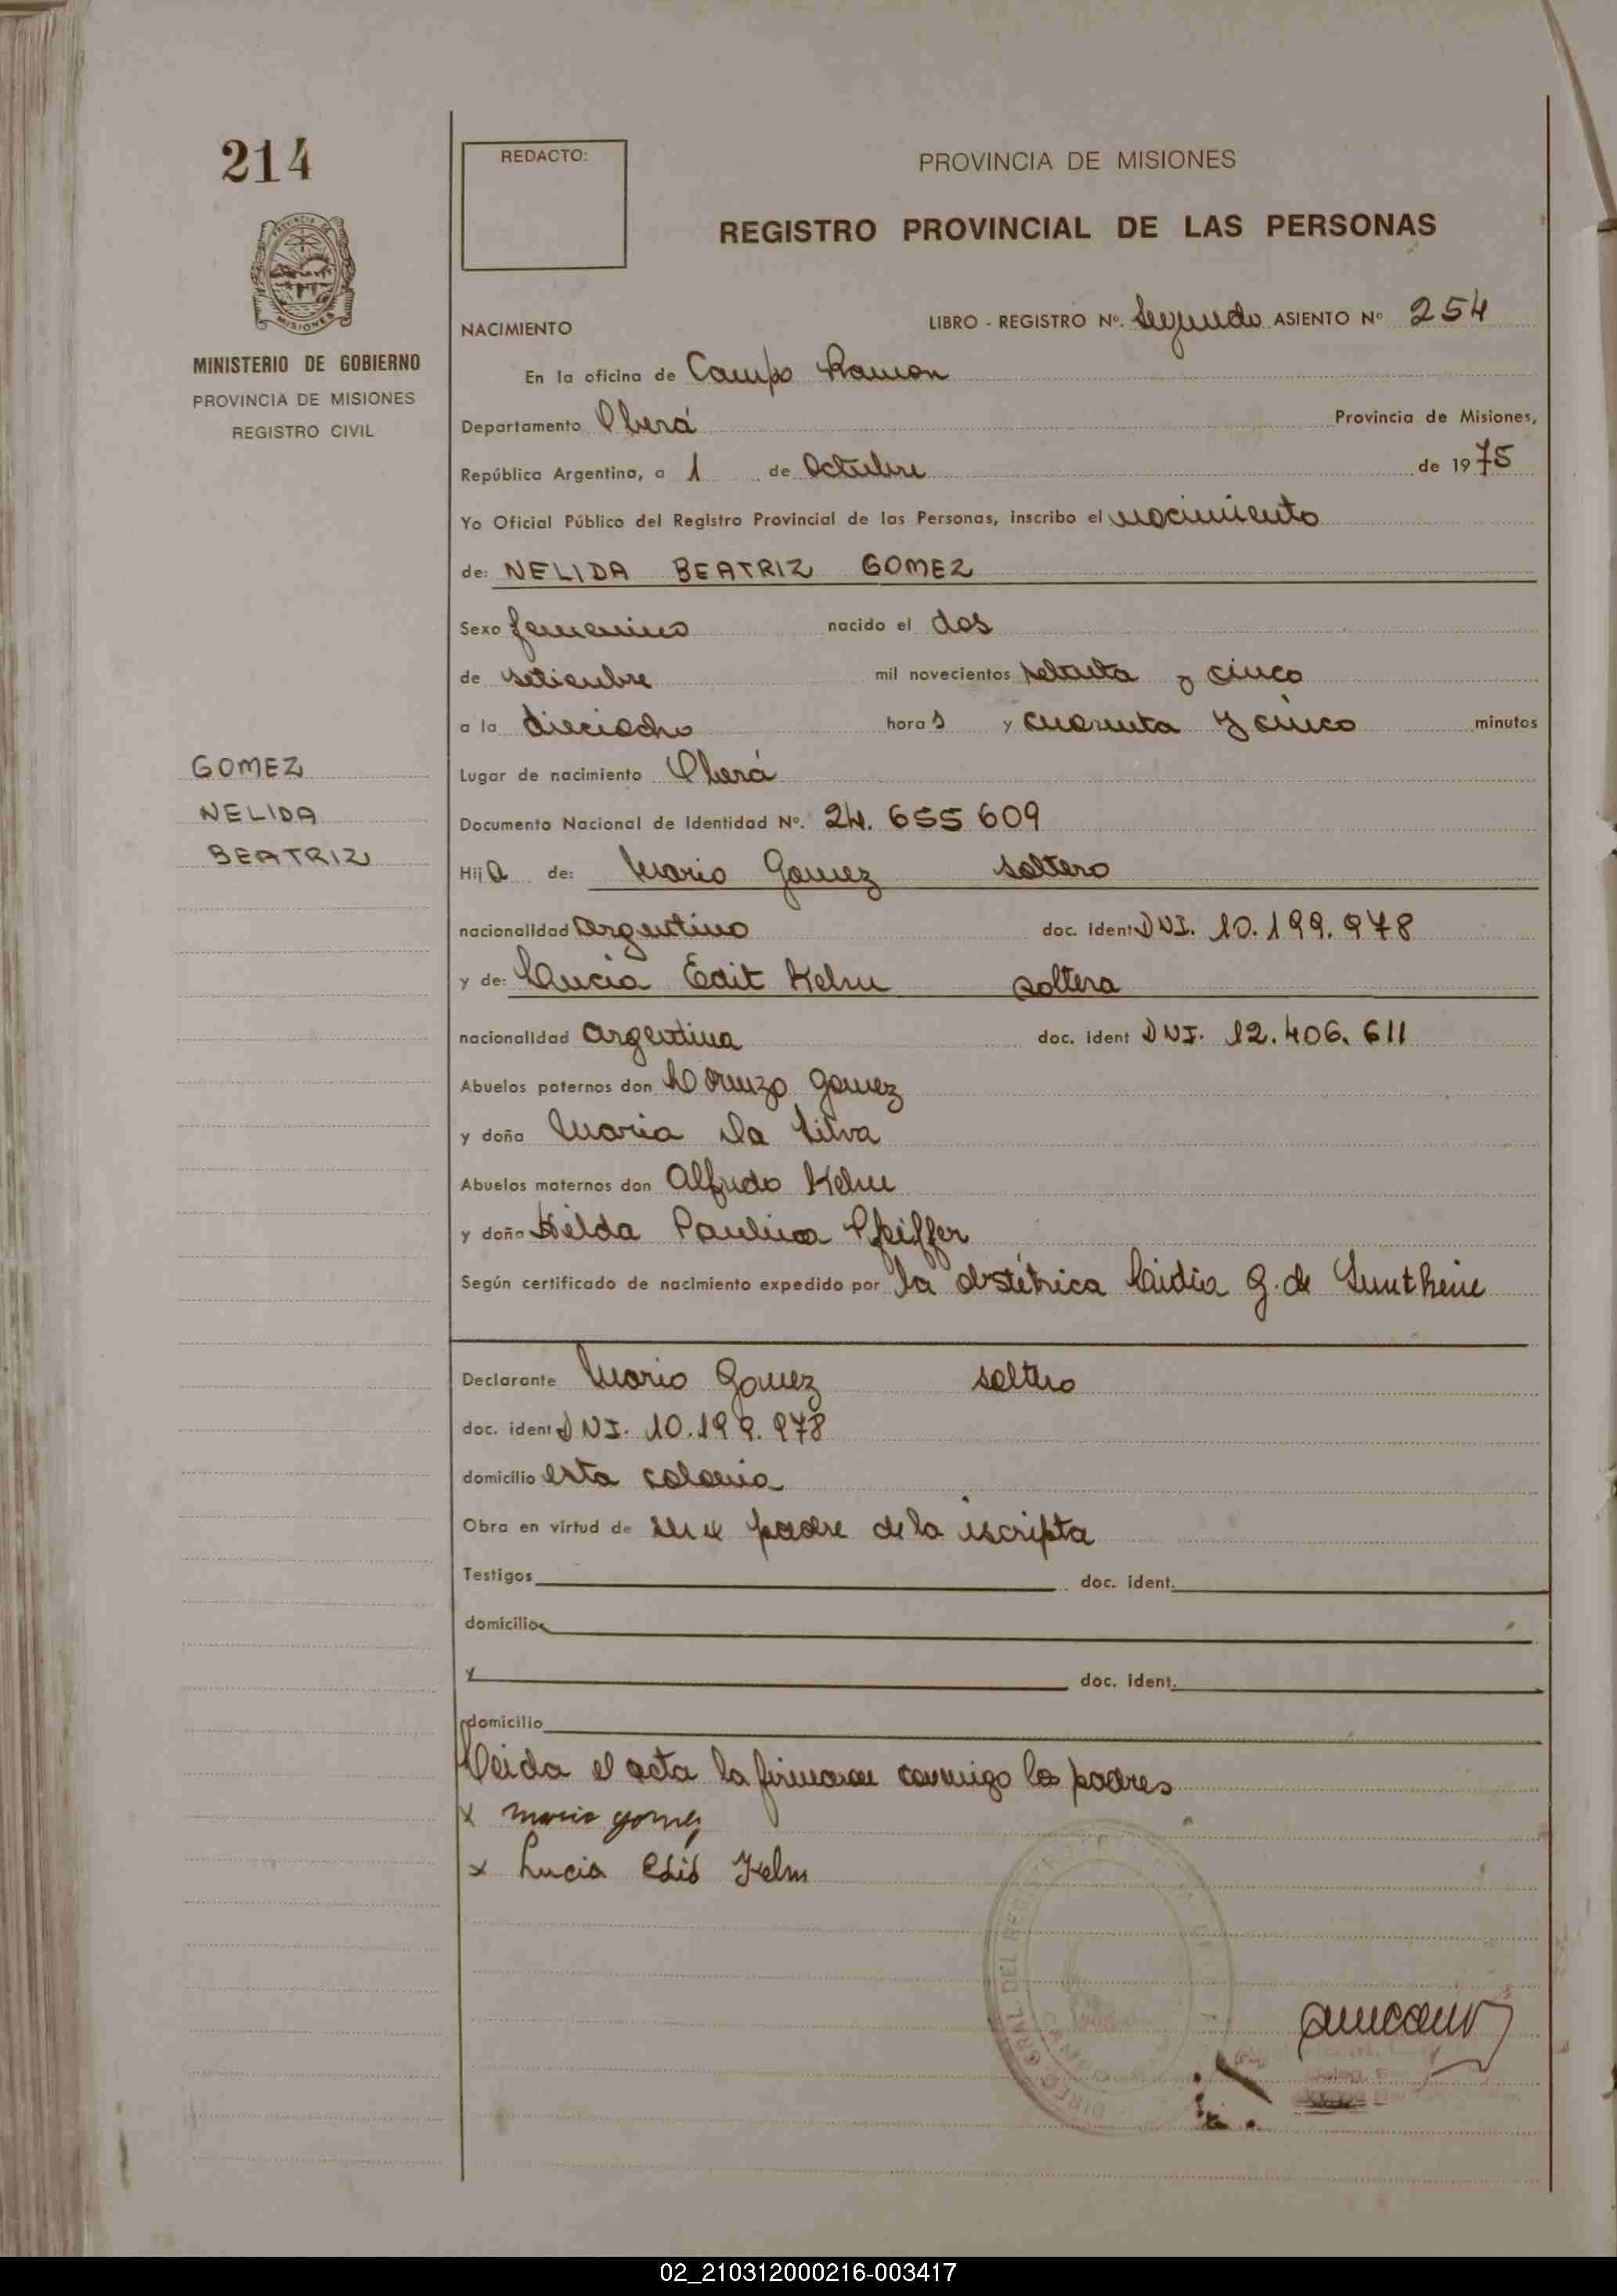 214
REDACTO:
PROVINCIA DE MISIONES
REGISTRO PROVINCIAL DE LAS PERSONAS
PROVINCIA DE
MISIONES
MINISTERIO DE GOBIERNO
PROVINCIA DE MISIONES
REGISTRO CIVIL
NACIMIENTO
LIBRO - REGISTRO Nº. Segundo ASIENTO Nº 254
En la oficina de Campo Ramon
Departamento Oberá Provincia de Misiones,
República Argentina, a 1 de Octubre de 1975
Yo Oficial Público del Registro Provincial de las Personas, inscribo el nacimiento
de: NELIDA BEATRIZ GOMEZ
Sexo femenino nacido el dos
de setiembre mil novecientos setenta y cinco
a la dieciocho hora s y cuarenta y cinco minutos
GOMEZ
NELIDA
BEATRIZ
Lugar de nacimiento Oberá
Documento Nacional de Identidad Nº. 24. 655 609
Hija de: Mario Gomez soltero
nacionalidad Argentino doc. ident DNI. 10.199.978
y de: Lucia Edit Kelm soltera
nacionalidad Argentina doc. ident DNI. 12.406.611
Abuelos paternos don Lorenzo Gomez
y doña Maria Da Silva
Abuelos maternos don Alfredo Kelm
y doña Hilda Paulina Pfeiffer
Según certificado de nacimiento expedido por la obstétrica Lidia G. de
Declarante Mario Gomez soltero
doc. ident DNI. 10.199.978
domicilio esta colonia
Obra en virtud de ser padre de la iscripta
Testigos doc. ident.
domicilio
y doc. ident.
domicilio
Leida el acta la firmaron conmigo los padres
x mario gomez
x Lucia Edit Kelm
DIREC. GRAL DEL REGISTRO
02_210312000216-003417